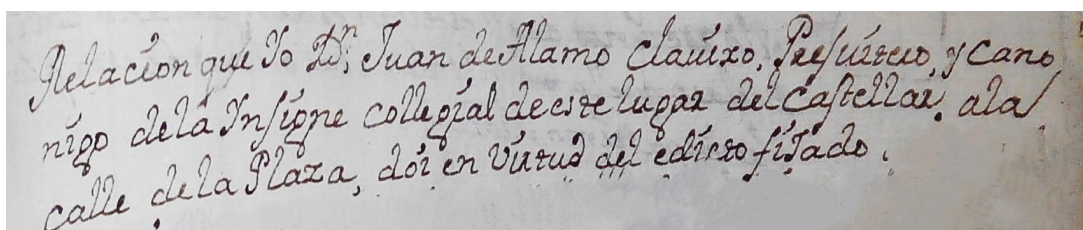 Relacion que Yo Dn. Juan de Alamo Clavixo, Presvitero, y Cano
nigo de la Insigne collegial de este lugar del castellar, a la
calle de la Plaza, doi en virtud del edicto fijado.